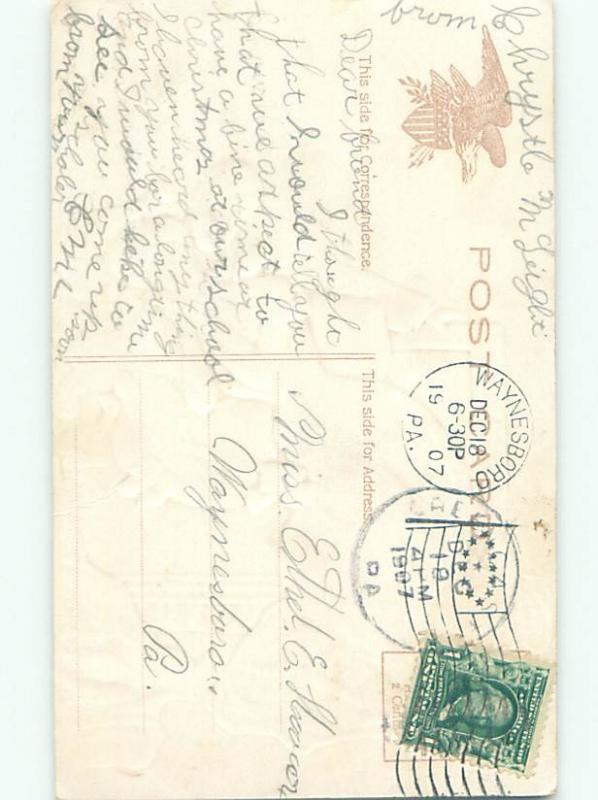 from Chrystle McLight
POST CARD
This side for Correspondence.
Dear friend
I thought
that I would tell you
that we aspect to
have a fine time or
Christmas at our school
I haven heard anything
from you for a long time
and I would like to
see you come up
soon
from your
C M L
This side for Address.
Miss. Ethel. E.
Waynesboro.
Pa.
WAYNESBORO
DEC 18
6-30P
19 07
PA.
DEC
18
4PM
1907
PA